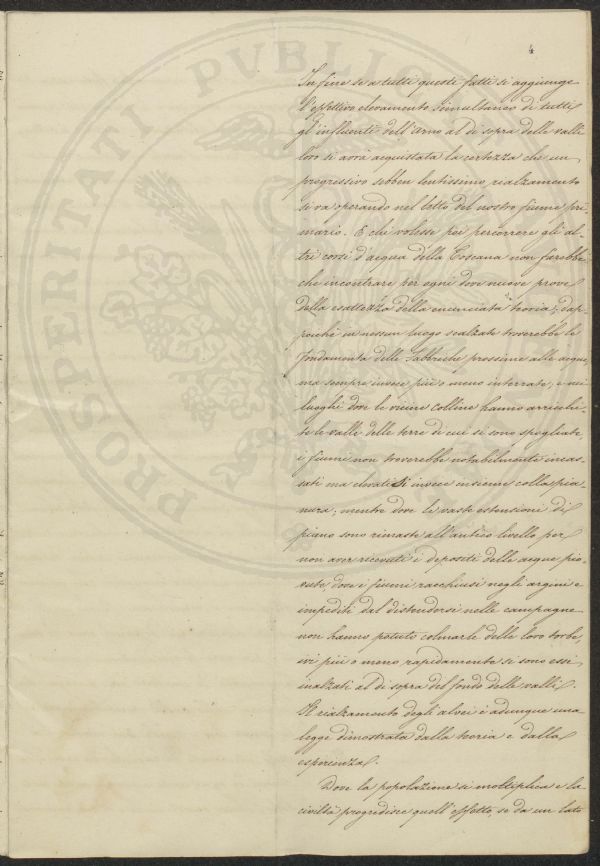 4
In fine se a tutti questi fatti si aggiunge
l'effettivo elevamento simultaneo di tutti
gl'influenti dell'Arno al di sopra delle valli
loro si avrà acquistata la certezza che un
progressivo sebben lentissimo rialzamento
si va operando nel letto del nostro fiume pri-
mario. E chi volesse poi percorrere gli al-
tri corsi d'acqua della Toscana non farebbe
che incontrare per ogni dove nuove prove
della esattezza della enunciata teoria; dap-
poichè in nessun luogo scalzate troverebbe le
fondamenta delle fabbriche prossime alle acque,
ma sempre invece più o meno interrate; e nei
luoghi dove le vicine colline hanno arricchi-
te le valli delle terre di cui si sono spogliate
i fiumi non troverebbe notabilmente incas-
sati ma elevatisi invece insieme colla pia-
nura; mentre dove le vaste estensioni di
piano sono rimaste all'antico livello per
non aver ricevuti i depositi delle acque pio-
vute, dove i fiumi racchiusi negli argini e
impediti dal distendersi nelle campagne
non hanno potuto colmarle delle loro torbe,
ivi più o meno rapidamente si sono essi
inalzati al di sopra del fondo delle valli.
Il rialzamento degli alvei è adunque una
legge dimostrata dalla teoria e dalla
esperienza.
Dove la popolazione si moltiplica e la
civiltà progredisce quell'effetto, se da un lato
PROSPERITATI PVBLICAE